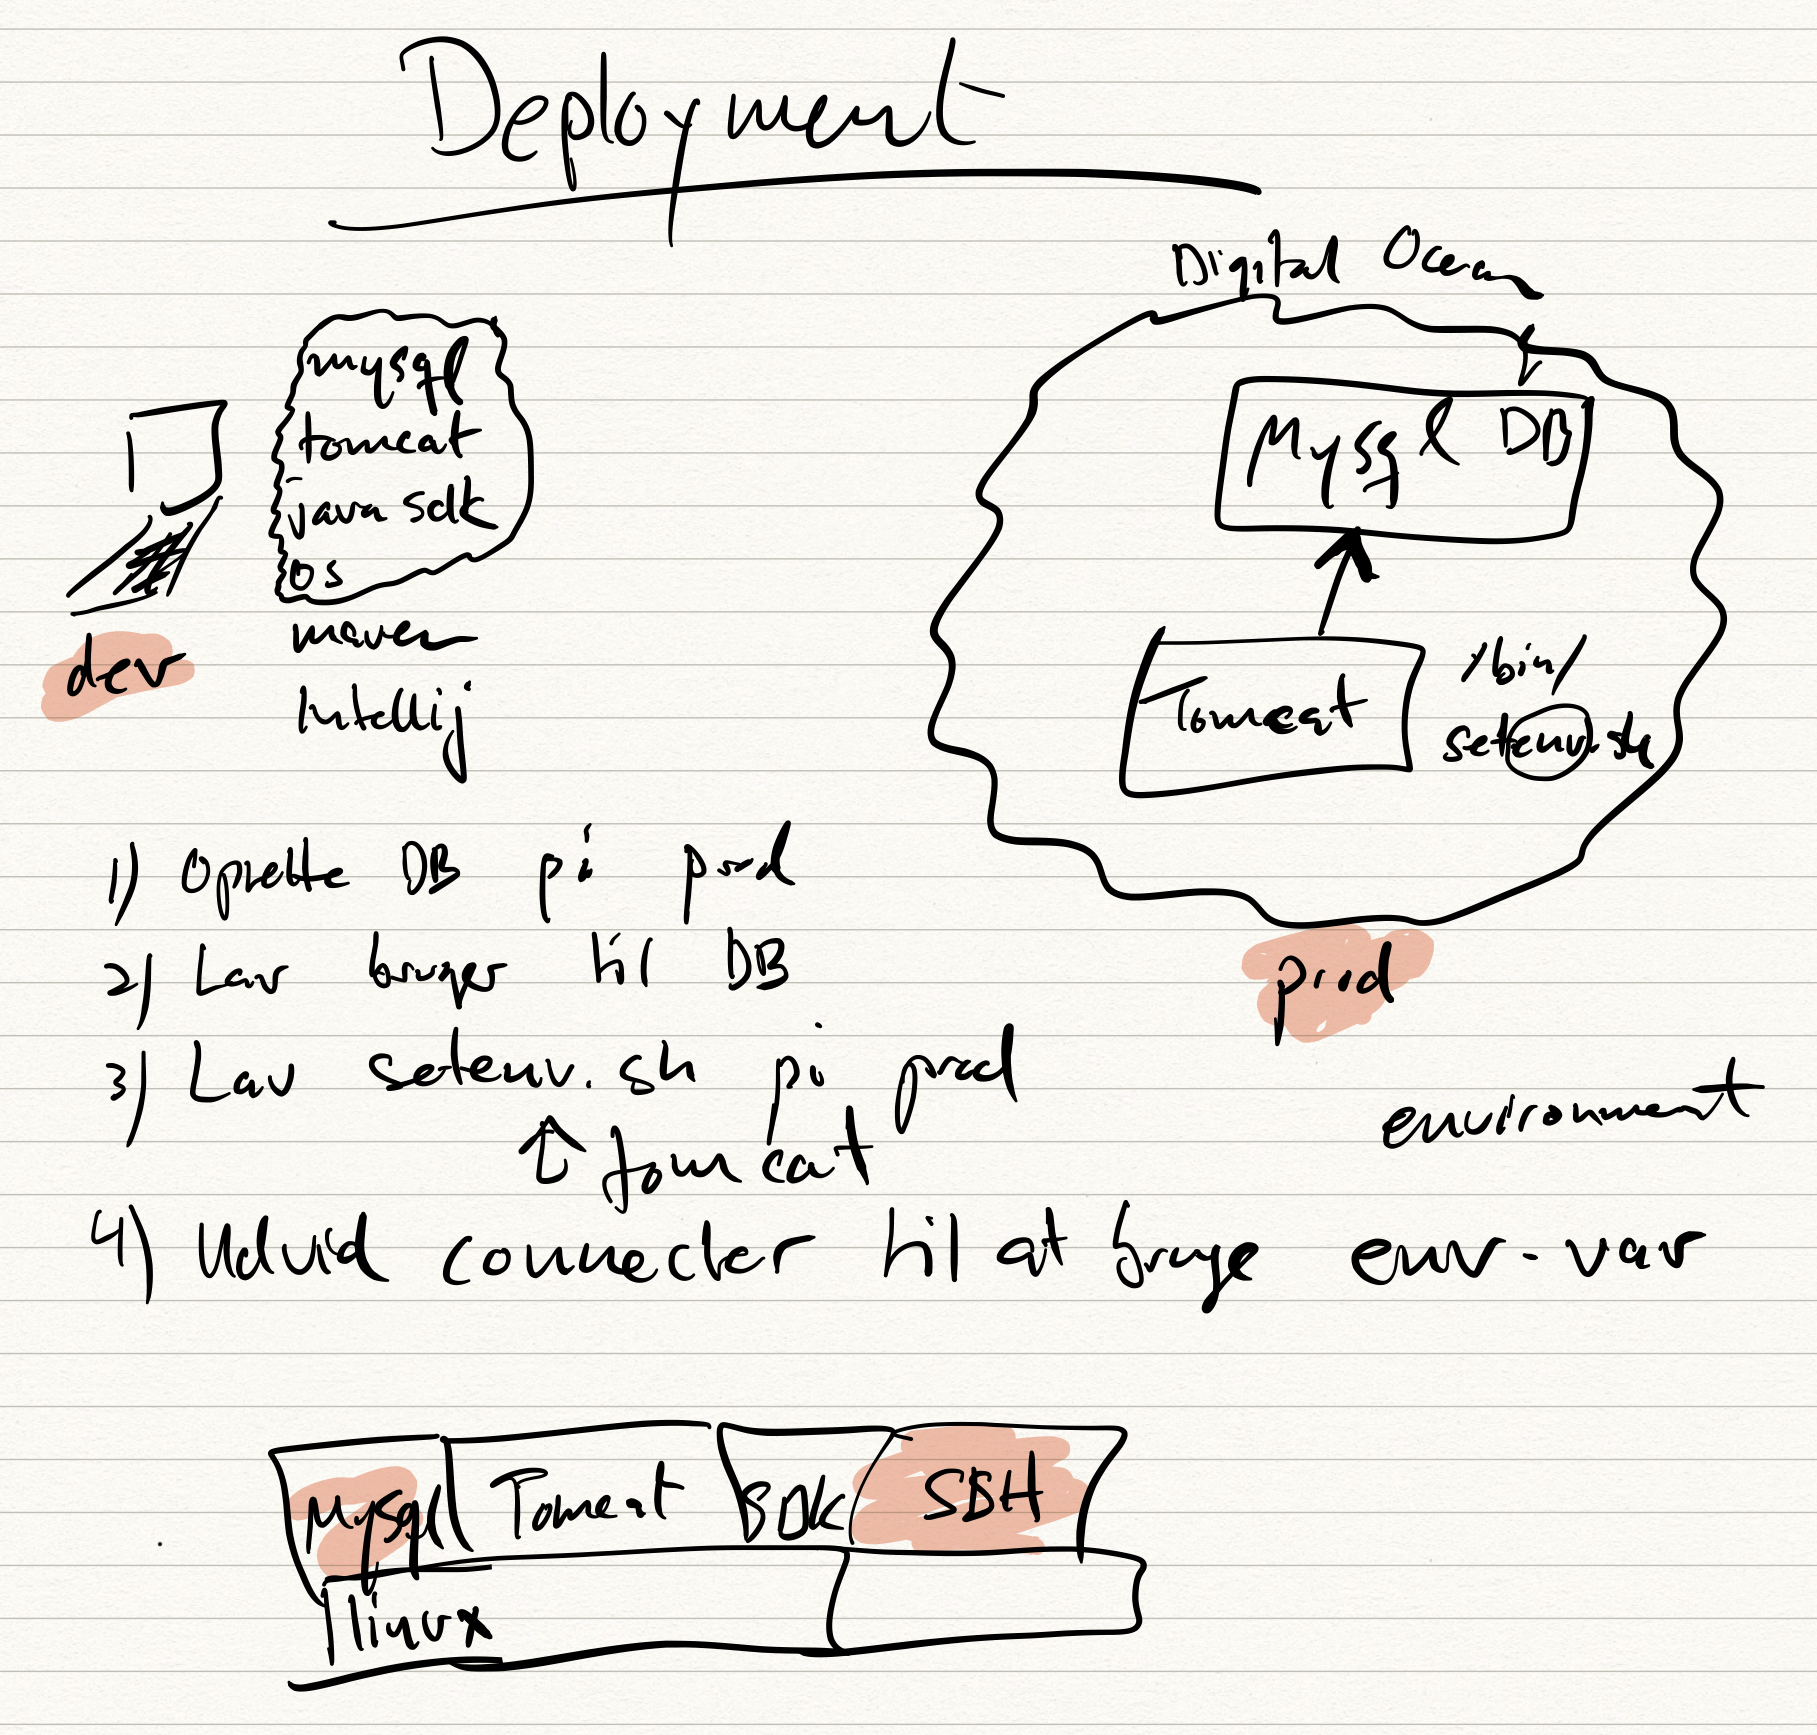 Deployment
Digital Ocean
mysql
tomcat
java sdk
os
maven
Intellij
dev
Mysql DB
Tomcat
/bin/
setenv.sh
prod
1) Oprette DB på prod
2) Lav bruger til DB
3) Lav setenv.sh på prod
tomcat
environment
4) Udvid connector til at bruge env-var
Mysql Tomcat SBH
linux